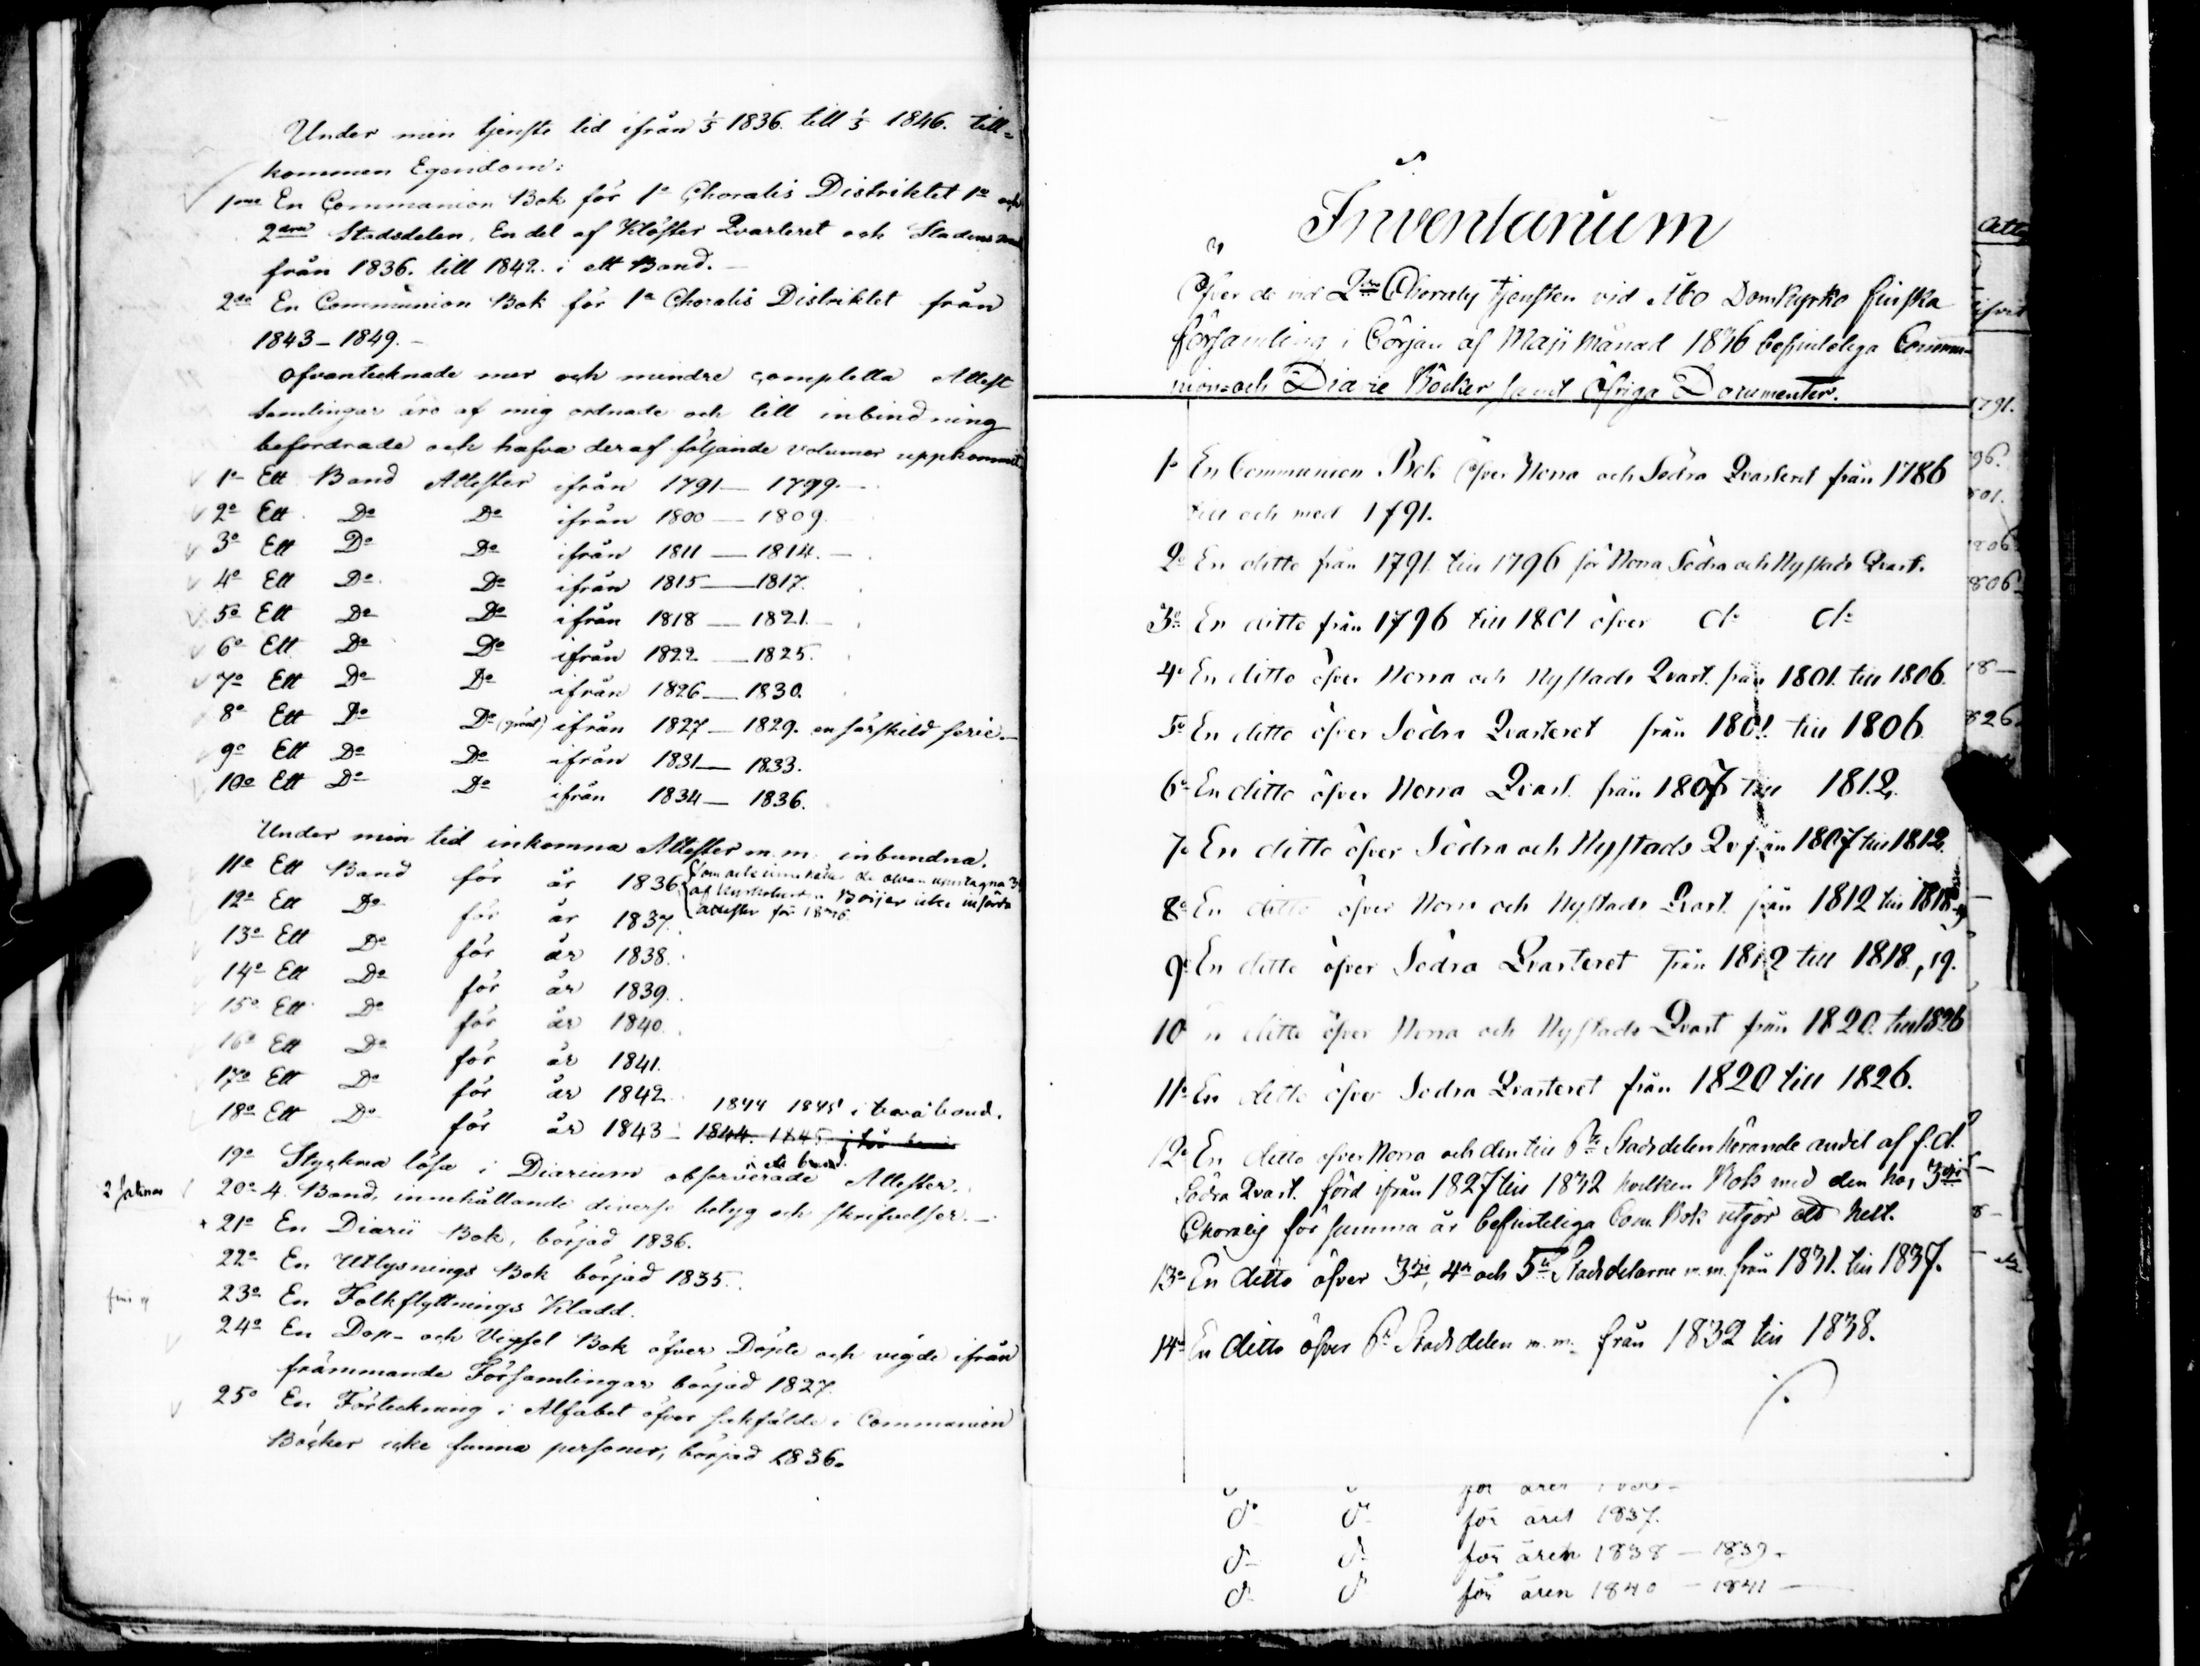 Under min tjenste tid ifrån 1/5 1836. till 1/5 1846. till=
kommen Egendom:
1mo En Communion Bok för 1a Choralis Distriktet 1a och
2dra Stadsdelen, En del af Klöster Qvarteret och Stadens
från 1836. till 1842. i ett Band.
2do En Communion Bok för 1a Choralis Distriktet från
1843 - 1849. -
Ofvantecknade mer och mindre completta Attest
Samlingar äro af mig ordnade och till inbindning
befordrade och hafva deraf följande volumer uppkommit
1o Ett Band Attester ifrån 1791 - 1799.
2o Ett Do Do ifrån 1800 - 1809.
3o Ett Do Do ifrån 1811 - 1814.
4o Ett Do Do ifrån 1815 - 1817.
5o Ett Do Do ifrån 1818 - 1821.
6o Ett Do Do ifrån 1822 - 1825.
7o Ett Do Do ifrån 1826 - 1830.
8o Ett Do Do ifrån 1827 - 1829. en särskild serie. -
9o Ett Do Do ifrån 1831 - 1833.
10o Ett Do Do ifrån 1834 - 1836.
Under min tid inkomna Attester m. m. inbundna.
11o Ett Band för år 1836
af Böijer icke införda
attester för 1836
12o Ett Do för år 1837.
13o Ett Do för år 1838.
14o Ett Do för år 1839.
15o Ett Do för år 1840.
16o Ett Do för år 1841.
17o Ett Do för år 1842.
1844 1845 i två band.
18o Ett Do för år 1843 - 1844. 1845
i ett band.
19o Styckna lösa i Diarium observerade Attester.
20o 4. Band, innehållande diverse betyg och skrifvelser. -
21o En Diarii Bok, börjad 1836.
22o En Utlysnings Bok börjad 1835.
23o En Folkflyttnings Kladd.
24o En Dop- och Vigsel Bok öfver Döpte och vigde ifrån
främmande Församlingar börjad 1827.
25o En Förteckning i Alfabet öfver sakfälde i Communion
Böcker icke funna personer, börjad 1836.
Inventarium
Öfver de vid 2dra Choralis tjensten vid Åbo Domkyrko finska
församling i början af Maji Månad 1836 befinteliga Commu-
nion- och Diarie Böcker samt öfriga Documenter.
1o En Communion Bok öfver Norra och Södra Qvarteret från 1786
till och med 1791.
2o En ditto från 1791 till 1796 för Norra Södra och Nystads Qvart.
3o En ditto från 1796 till 1801 öfver do do
4o En ditto öfver Norra och Nystads Qvart. från 1801. till 1806.
5o En ditto öfver Södra Qvarteret från 1801. till 1806.
6o En ditto öfver Norra Qvart. från 1807 till 1812.
7o En ditto öfver Södra och Nystads Qv från 1807 till 1812.
8o En ditto öfver Norra och Nystads Qvart. från 1812 till 1818
9o En ditto öfver Södra Qvarteret från 1812 till 1818, 19.
10 n ditto öfver Norra och Nystads Qvart från 1820. till 1826
11o En ditto öfver Södra Qvarteret från 1820 till 1826.
12o En ditto öfver Norra och den till 1a Stadsdelen hörande andel af f. d.
Södra Qvart. förd ifrån 1827 till 1832 hvilken Bok med den hos 3dje
Choralis för samma år befinteliga Com. Bok utgör ett helt.
13o En ditto öfver 3dje, 4de och 5te Stadsdelarne m. m. från 1831. till 1837.
14o En ditto öfver 1a Stadsdelen m. m. från 1832 till 1838.
do do för året 1837.
do do för åren 1838 - 1839 -
do do för åren 1840 - 1841 -
1791.
96.
801.
1806
806
18 -
826.